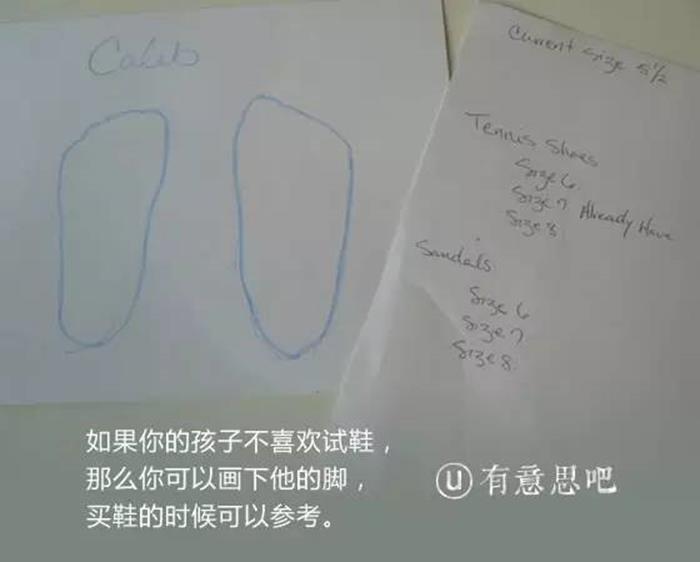 Caleb
Current size 5 1/2
Tennis Shoes
Size 6
Size 7 Already Have
Size 8
Sandals
Size 6
Size 7
Size 8
如果你的孩子不喜欢试鞋，
那么你可以画下他的脚，
买鞋的时候可以参考。
u 有意思吧